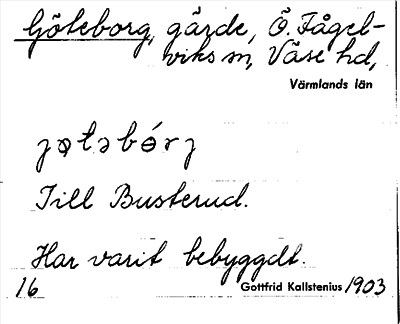 Göteborg, gärde, Ö. Fågel-
viks sn, Väse hd,
Värmlands län
jɵtəbórj
Till Busterud.
Har varit bebyggdt.
16 Gottfrid Kallstenius 1903